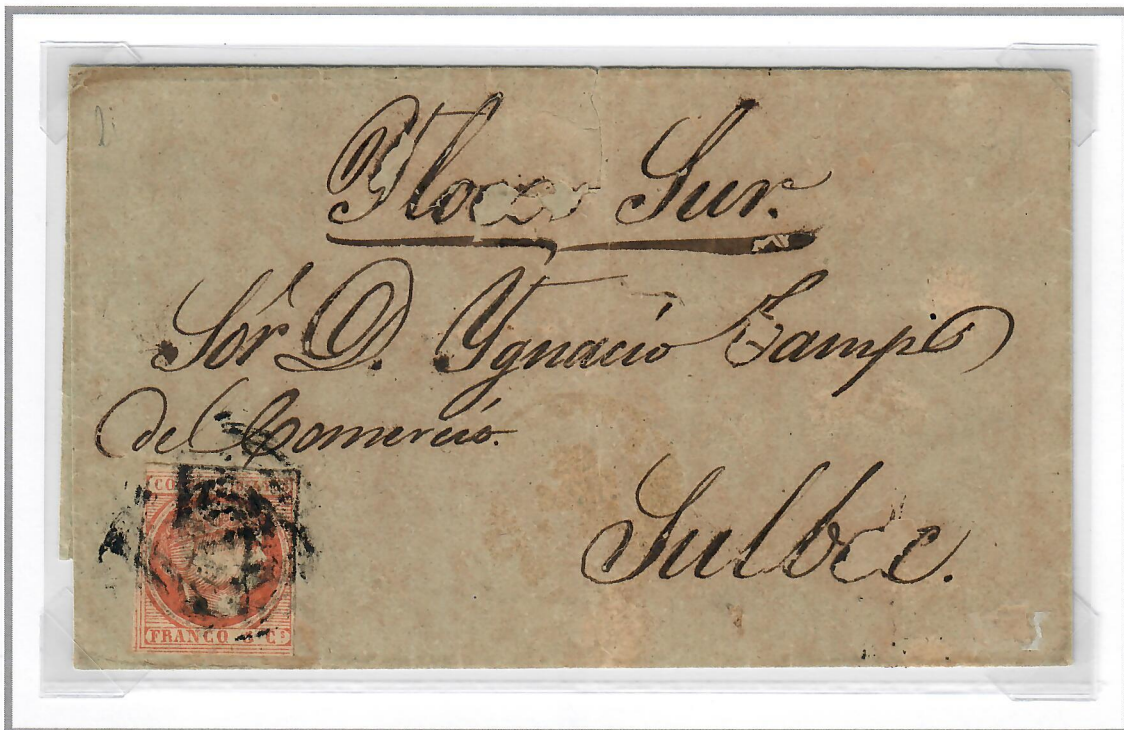 Ylocos Sur.
Sõr D. Ygnacio
del Comercio.
Sulbec.
FRANCO Cs